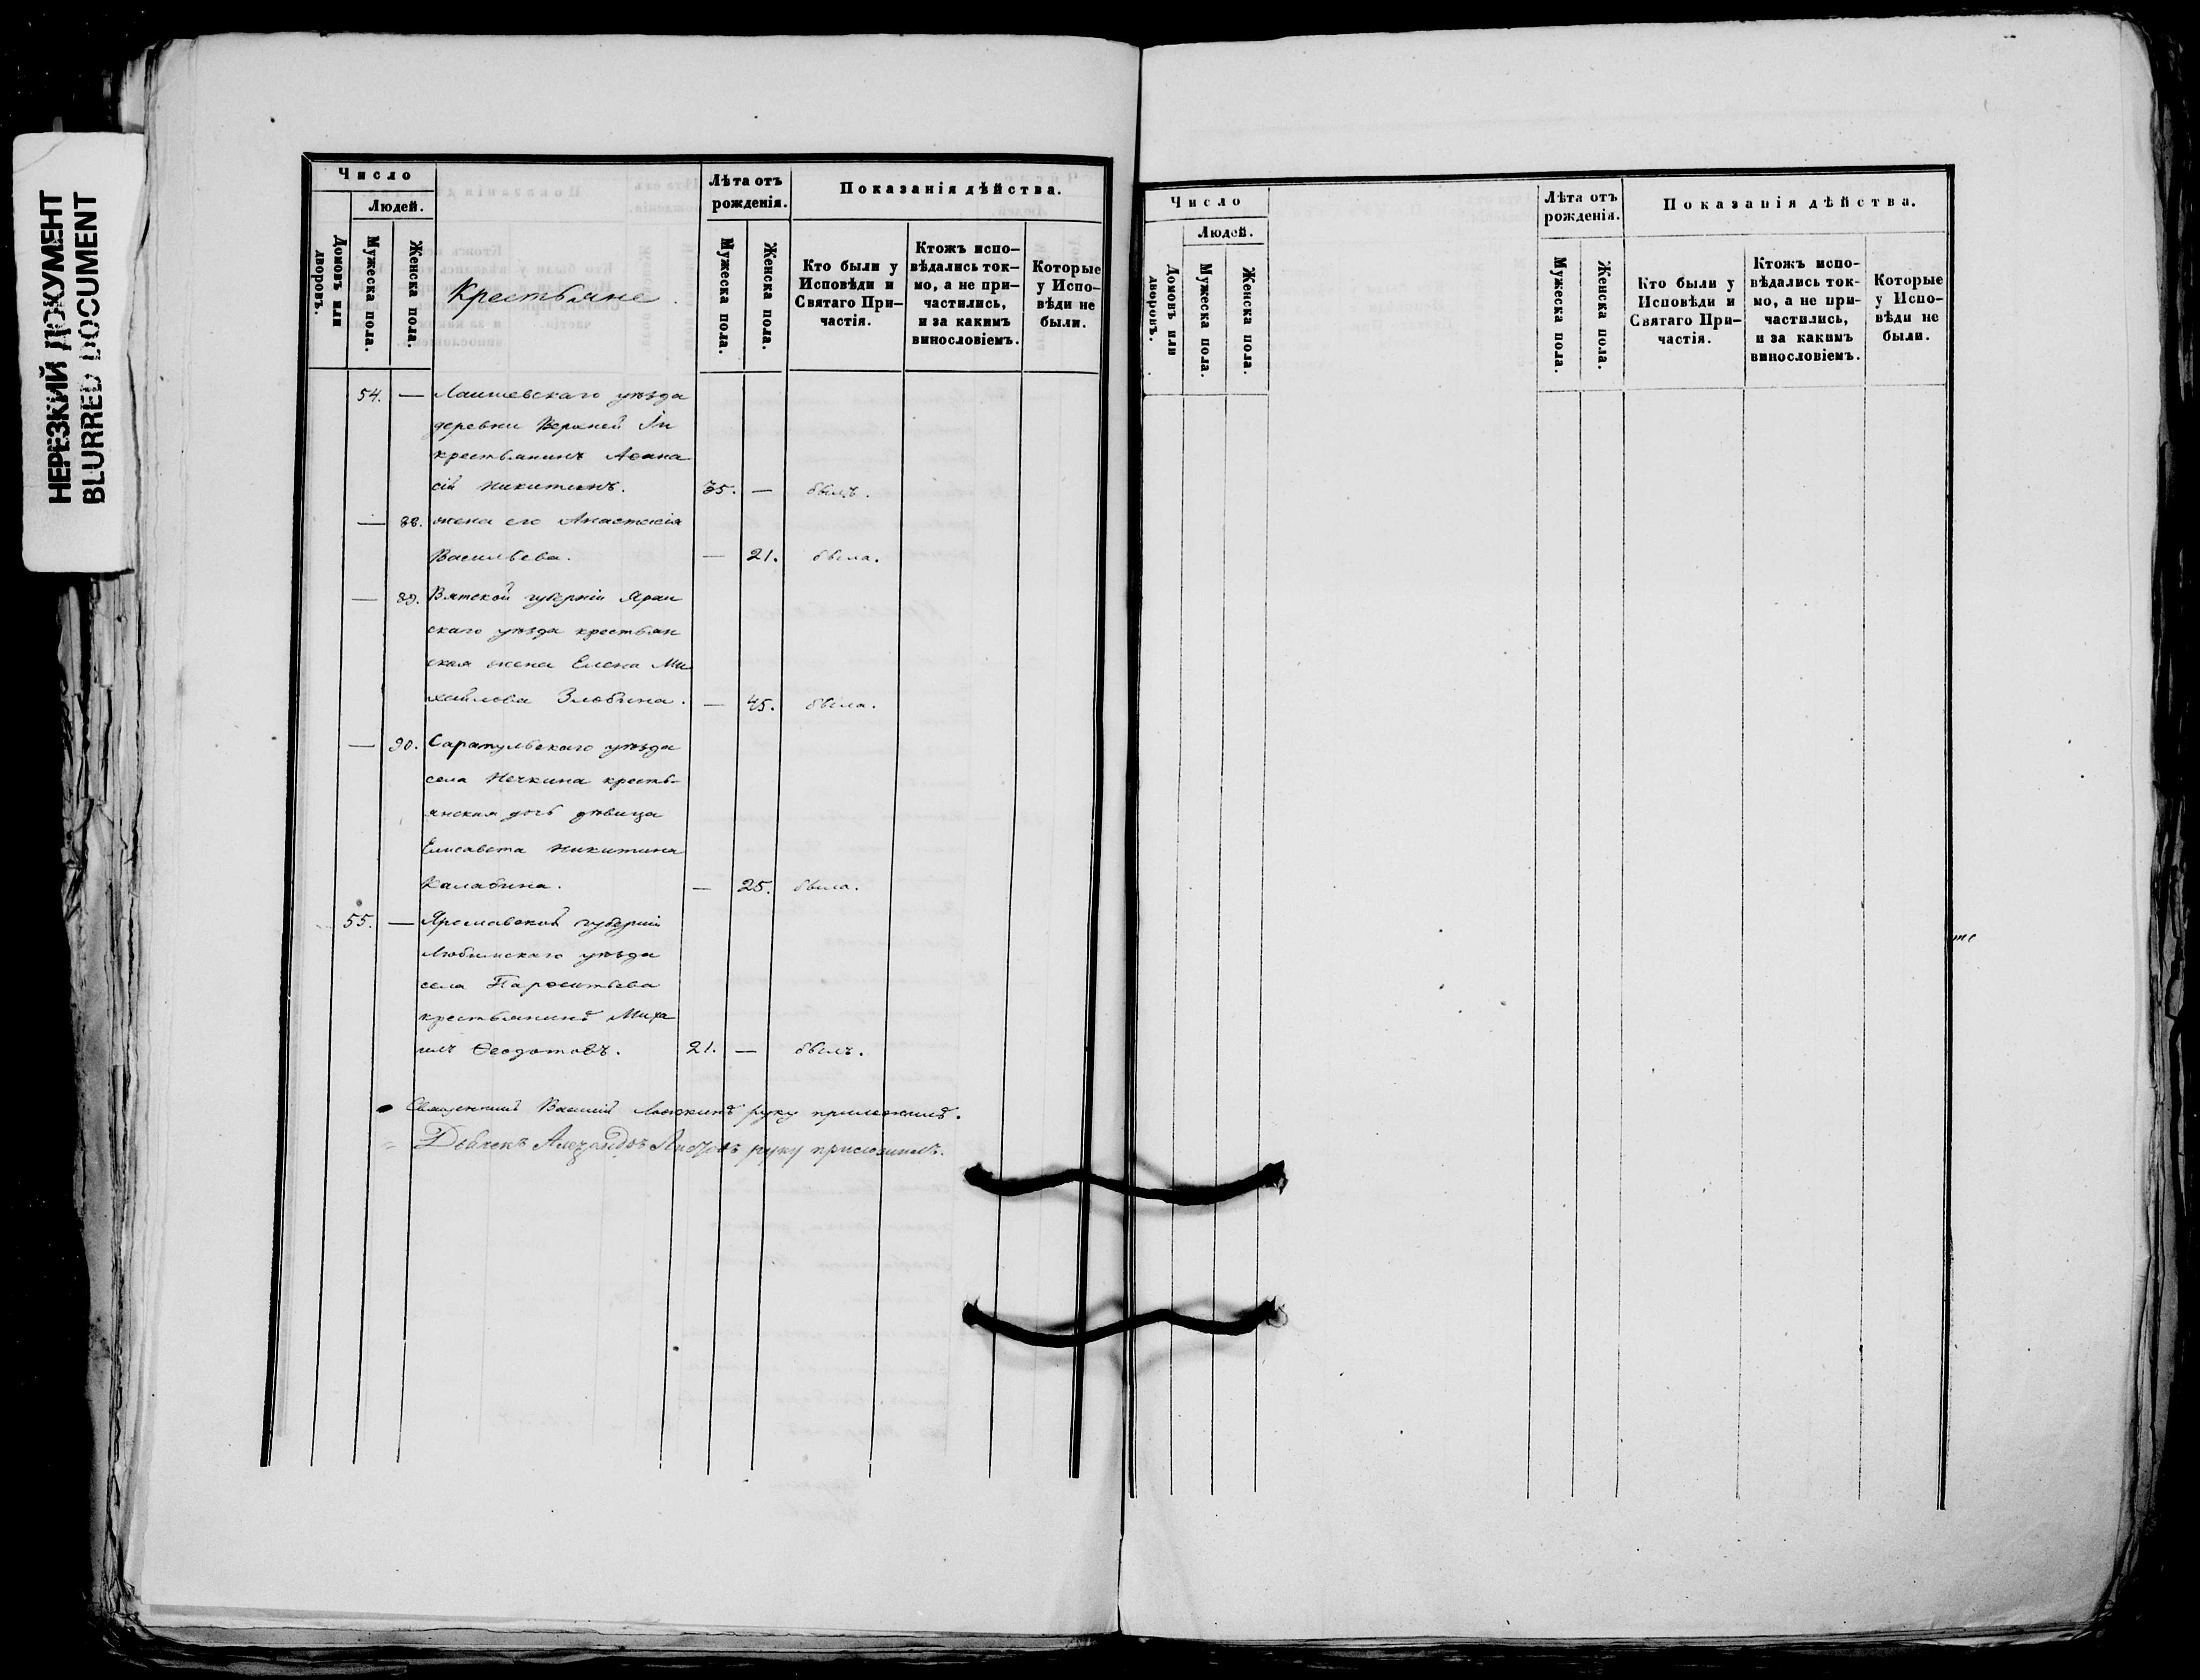 НЕРЕЗКИЙ ДОКУМЕНТ
BLURRED DOCUMENT
Число
Людей.
Домовъ или дворовъ.
Мужеска пола.
Женска пола.
Крестьяне.
Лѣта отъ рожденія.
Мужеска пола.
Женска пола.
Показанія дѣйства.
Кто были у Исповѣди и Святаго При-частія.
Ктожъ испо-вѣдались ток-мо, а не при-частились, и за какимъ винословіемъ.
Которые у Испо-вѣди не были.
54. — Лаишевскаго уѣзда
деревни Верхней
крестьянинъ Аѳана
сій Никитинъ. 35. — былъ.
— 88. жена его Анастасія
Васильева. — 21. была.
— 89. Вятской губерніи Яран
скаго уѣзда крестьян
ская жена Елена Ми
хайлова Злобина. — 45. была.
— 90. Сарапульскаго уѣзда
села Нечкина кресть-
янская дочь дѣвица
Елисавета Никитина
Калабина. — 25. была.
55. — Ярославской губерніи
Любимскаго уѣзда
села Парѳентьева
крестьянинъ Миха
илъ Ѳеодотовъ. 21. — былъ.
Священникъ Василій руку приложилъ.
Діаконъ Александръ руку приложилъ.
Число
Людей.
Домовъ или дворовъ.
Мужеска пола.
Женска пола.
Лѣта отъ рожденія.
Мужеска пола.
Женска пола.
Показанія дѣйства.
Кто были у Исповѣди и Святаго При-частія.
Ктожъ испо-вѣдались ток-мо, а не при-частились, и за какимъ винословіемъ.
Которые у Испо-вѣди не были.